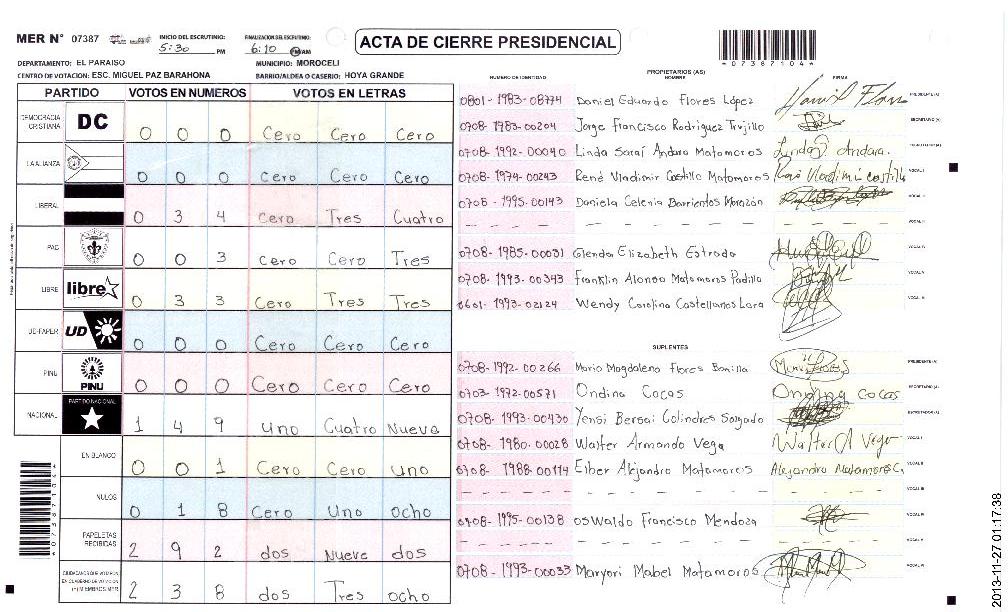 MER N° 07387 INICIO DEL ESCRUTINIO: 5:30 PM FINALIZACION DEL ESCRUTINIO: 6:10 PM/AM ACTA DE CIERRE PRESIDENCIAL
*07387104*
DEPARTAMENTO: EL PARAISO MUNICIPIO: MOROCELI
CENTRO DE VOTACION: ESC. MIGUEL PAZ BARAHONA BARRIO/ALDEA O CASERIO: HOYA GRANDE
PARTIDO VOTOS EN NUMEROS VOTOS EN LETRAS
DEMOCRACIA CRISTIANA DC 0 0 0 Cero Cero Cero
LA ALIANZA 0 0 0 Cero Cero Cero
LIBERAL 0 3 4 Cero Tres Cuatro
PAC 0 0 3 Cero Cero Tres
LIBRE libre 0 3 3 Cero Tres Tres
UD-FAPER UD 0 0 0 Cero Cero Cero
PINU PINU 0 0 0 Cero Cero Cero
NACIONAL PARTIDO NACIONAL 1 4 9 uno Cuatro Nueve
EN BLANCO 0 0 1 Cero Cero uno
NULOS 0 1 8 Cero Uno ocho
PAPELETAS RECIBIDAS 2 9 2 dos Nueve dos
CIUDADANOS QUE VOTARON EN CUADERNO DE VOTACION (+) MIEMBROS MER 2 3 8 dos Tres ocho
*07387104*
NUMERO DE IDENTIDAD PROPIETARIOS (AS) NOMBRE FIRMA
0801-1983-08774 Daniel Eduardo Flores López PRESIDENTE (A)
0708-1983-00204 Jorge Francisco Rodriguez Trujillo SECRETARIO (A)
0708-1992-00040 Linda Saraí Andara Matamoros Linda S Andara.
0708-1974-00243 René Vladimir Castillo Matamoros Vladimir Castillo VOCAL I
0708-1995-00143 Daniela Celenia Barrientos Morazán VOCAL II
VOCAL III
0708-1985-00031 Glenda Elizabeth Estrada VOCAL IV
0708-1993-00343 Franklin Alonso Matamoros Padilla VOCAL V
0601-1993-02124 Wendy Carolina Castellanos Lara VOCAL VI
SUPLENTES
0708-1992-00266 Mario Magdaleno Flores Bonilla PRESIDENTE (A)
0703-1972-00571 Ondina Cocas Ondina Cocas SECRETARIO (A)
0708-1993-00430 Yensi Bersai Colindres Salgado ESCRUTADOR (A)
0708-1980-00028 Walter Armando Vega Walter A Vega VOCAL I
0708-1988-00114 Elber Alejandro Matamoros Alejandro Matamoros C. VOCAL II
VOCAL III
0708-1995-00138 osWaldo Francisco Mendoza VOCAL IV
VOCAL V
0708-1993-00033 Maryori Mabel Matamoros VOCAL VI
2013-11-27 01:17:38